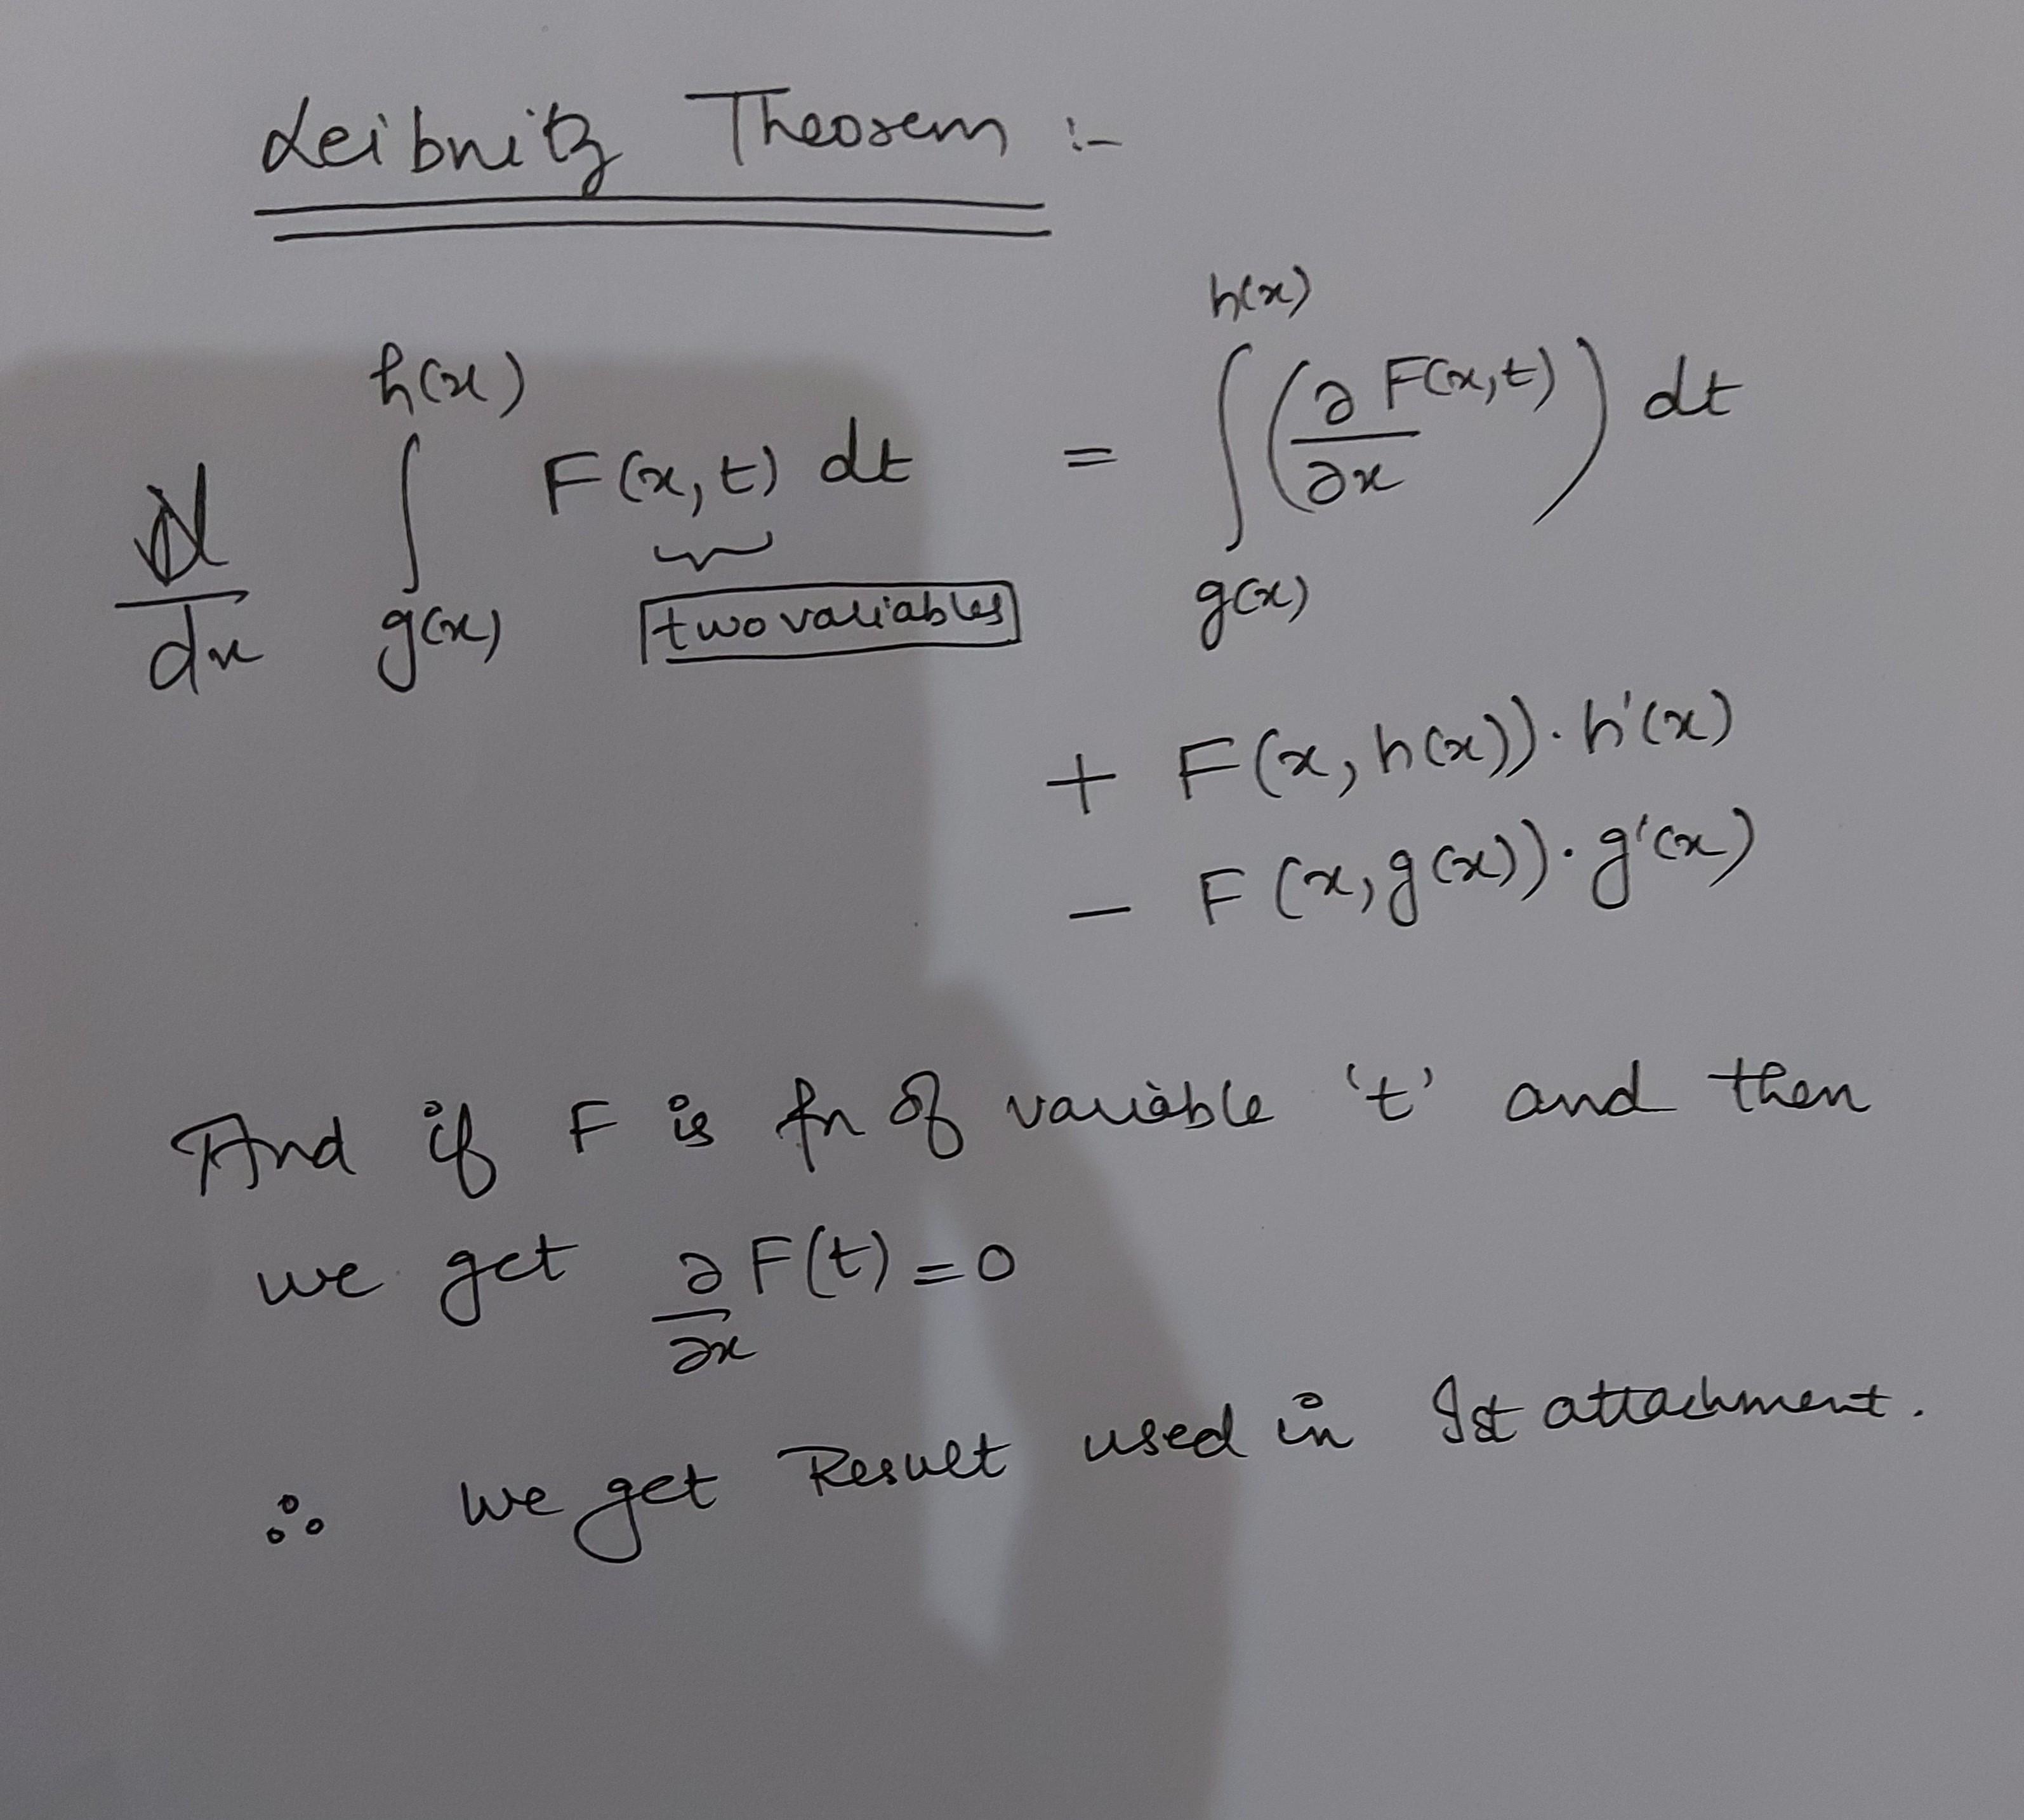 Leibnitz Theorem :-
d/dx ∫_{g(x)}^{h(x)} F(x,t) dt = ∫_{g(x)}^{h(x)} (∂F(x,t)/∂x) dt
two variables
+ F(x, h(x)).h'(x)
- F(x, g(x)).g'(x)
And if F is fn of variable 't' and then
we get ∂/∂x F(t) = 0
∴ we get Result used in Ist attachment.